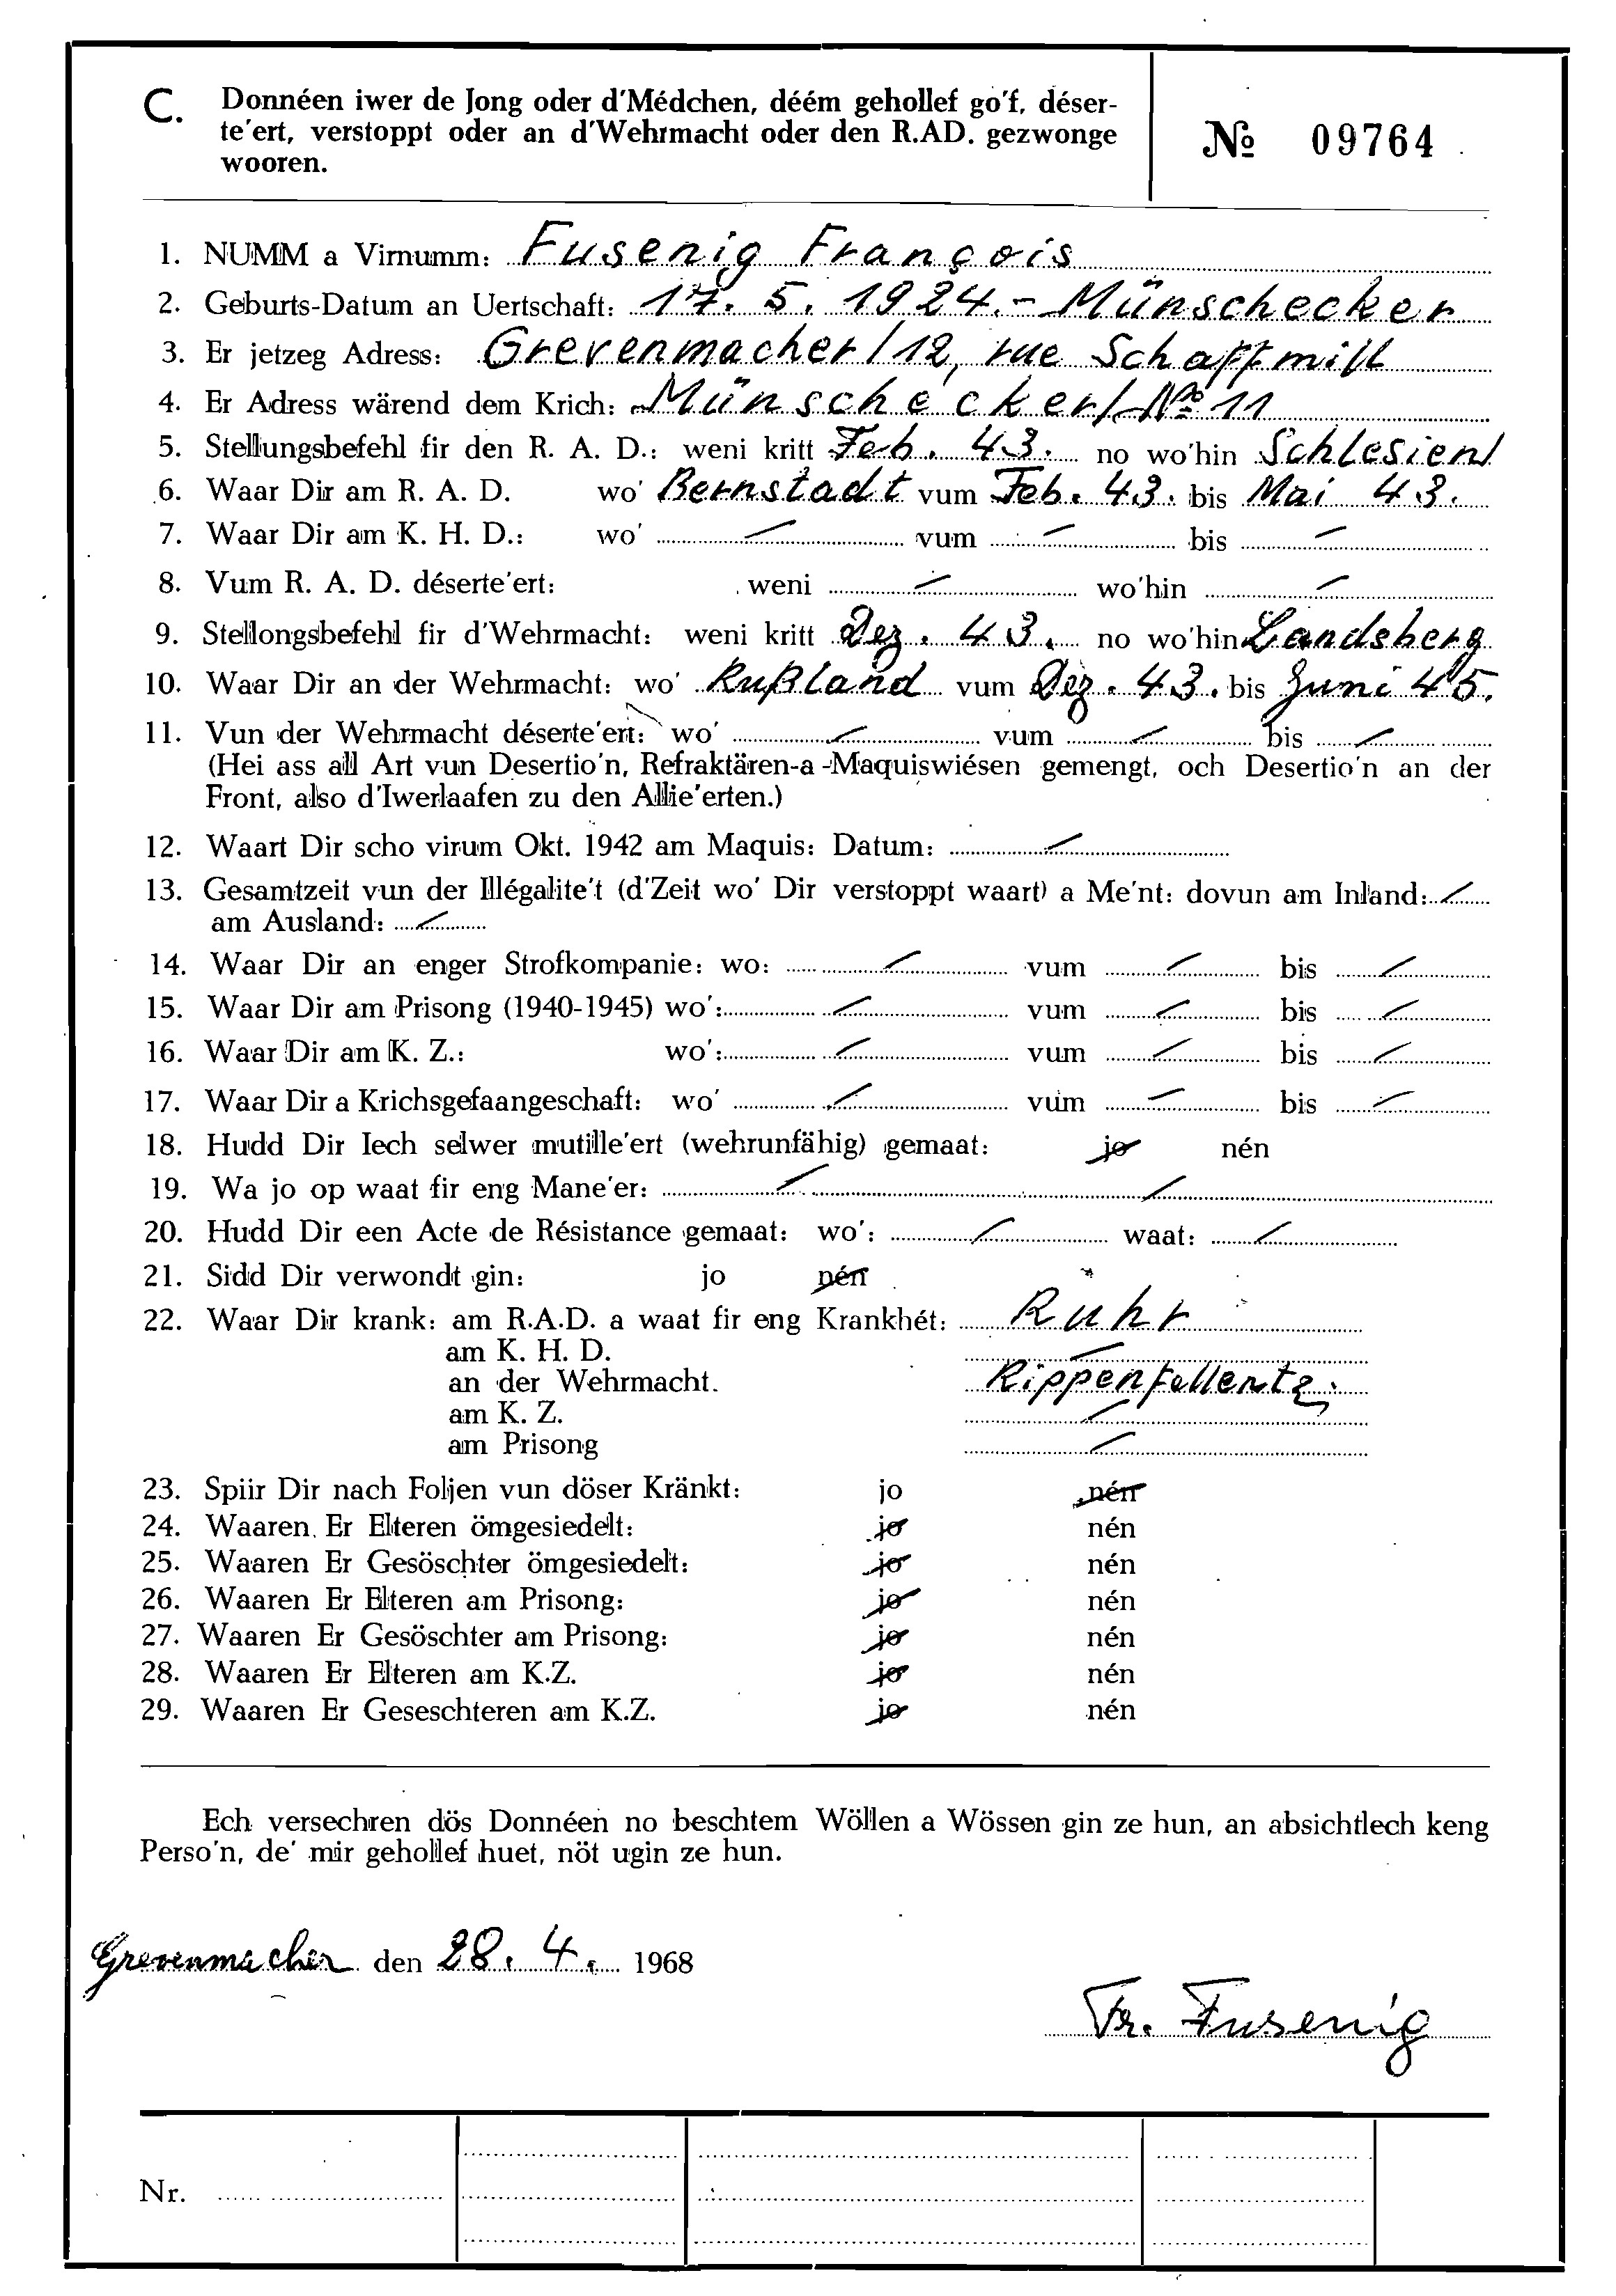 C. Donnéen iwer de Jong oder d'Médchen, déém gehollef go'f, déser-
te'ert, verstoppt oder an d'Wehrmacht oder den R.AD. gezwonge
wooren.
№ 09764
1. NUMM a Virnumm: Fusenig François
2. Geburts-Datum an Uertschaft: 17. 5. 1924. - Münschecker
3. Er jetzeg Adress: Grevenmacher / 12, rue Schaffmill
4. Er Adress wärend dem Krich: Münschecker / No 11
5. Stellungsbefehl fir den R. A. D.: weni kritt Feb. 43. no wo'hin Schlesien
6. Waar Dir am R. A. D. wo' Bernstadt vum Feb. 43. bis Mai 43.
7. Waar Dir am K. H. D.: wo' — vum — bis —
8. Vum R. A. D. déserte'ert: weni — wo'hin —
9. Stellongsbefehl fir d'Wehrmacht: weni kritt Dez. 43. no wo'hin Landsberg
10. Waar Dir an der Wehrmacht: wo' Rußland vum Dez. 43. bis Juni 45.
11. Vun der Wehrmacht déserte'ert: wo' — vum — bis —
(Hei ass all Art vun Desertio'n, Refraktären-a-Maquiswiésen gemengt, och Desertio'n an der
Front, also d'Iwerlaafen zu den Allie'erten.)
12. Waart Dir scho virum Okt. 1942 am Maquis: Datum: —
13. Gesamtzeit vun der Illégalite't (d'Zeit wo' Dir verstoppt waart) a Me'nt: dovun am Inland: —
am Ausland: —
14. Waar Dir an enger Strofkompanie: wo: — vum — bis —
15. Waar Dir am Prisong (1940-1945) wo': — vum — bis —
16. Waar Dir am K. Z.: wo': — vum — bis —
17. Waar Dir a Krichsgefaangeschaft: wo' — vum — bis —
18. Hudd Dir Iech selwer mutille'ert (wehrunfähig) gemaat: jo nén
19. Wa jo op waat fir eng Mane'er: — —
20. Hudd Dir een Acte de Résistance gemaat: wo': — waat: —
21. Sidd Dir verwondt gin: jo nén
22. Waar Dir krank: am R.A.D. a waat fir eng Krankhét: Ruhr
am K. H. D. —
an der Wehrmacht. Rippenfellentz.
am K. Z. —
am Prisong —
23. Spiir Dir nach Foljen vun döser Kränkt: jo nén
24. Waaren Er Elteren ömgesiedelt: jo nén
25. Waaren Er Gesöschter ömgesiedelt: jo nén
26. Waaren Er Elteren am Prisong: jo nén
27. Waaren Er Gesöschter am Prisong: jo nén
28. Waaren Er Elteren am K.Z. jo nén
29. Waaren Er Geseschteren am K.Z. jo nén
Ech versechren dös Donnéen no beschtem Wöllen a Wössen gin ze hun, an absichtlech keng
Perso'n, de' mir gehollef huet, nöt ugin ze hun.
Grevenmacher den 28. 4. 1968
Fr. Fusenig
Nr.